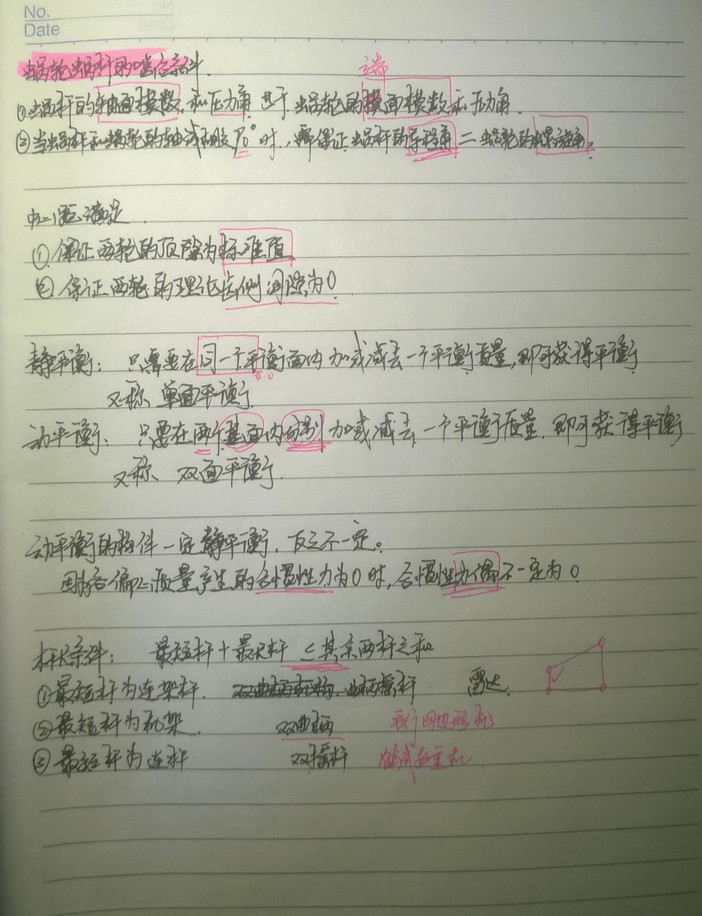 No.
Date
蜗轮蜗杆的啮合条件.
主
①蜗杆的轴面模数和压力角等于蜗轮的端面模数和压力角.
②当蜗杆和蜗轮的轴线相交90°时,,需保证蜗杆的导程角=蜗轮的螺旋角.
中心距满足.
①保证两轮的顶隙为标准值
②保证两轮的理论齿侧间隙为0
静平衡: 只需要在同一个平衡面内加或减去一个平衡质量,即可获得平衡
又称 单面平衡
动平衡: 只要在两个基面内分别加或减去一个平衡质量.即可获得平衡
又称 双面平衡.
动平衡的构件一定静平衡, 反之不一定。
因为各偏心质量产生的合惯性力为0时,合惯性力偶不一定为0
杆长条件: 最短杆+最长杆≤其余两杆之和
①最短杆为连架杆. 双曲柄机构.曲柄摇杆 雷达.
②最短杆为机架. 双曲柄
③最短杆为连杆 双摇杆 起重机